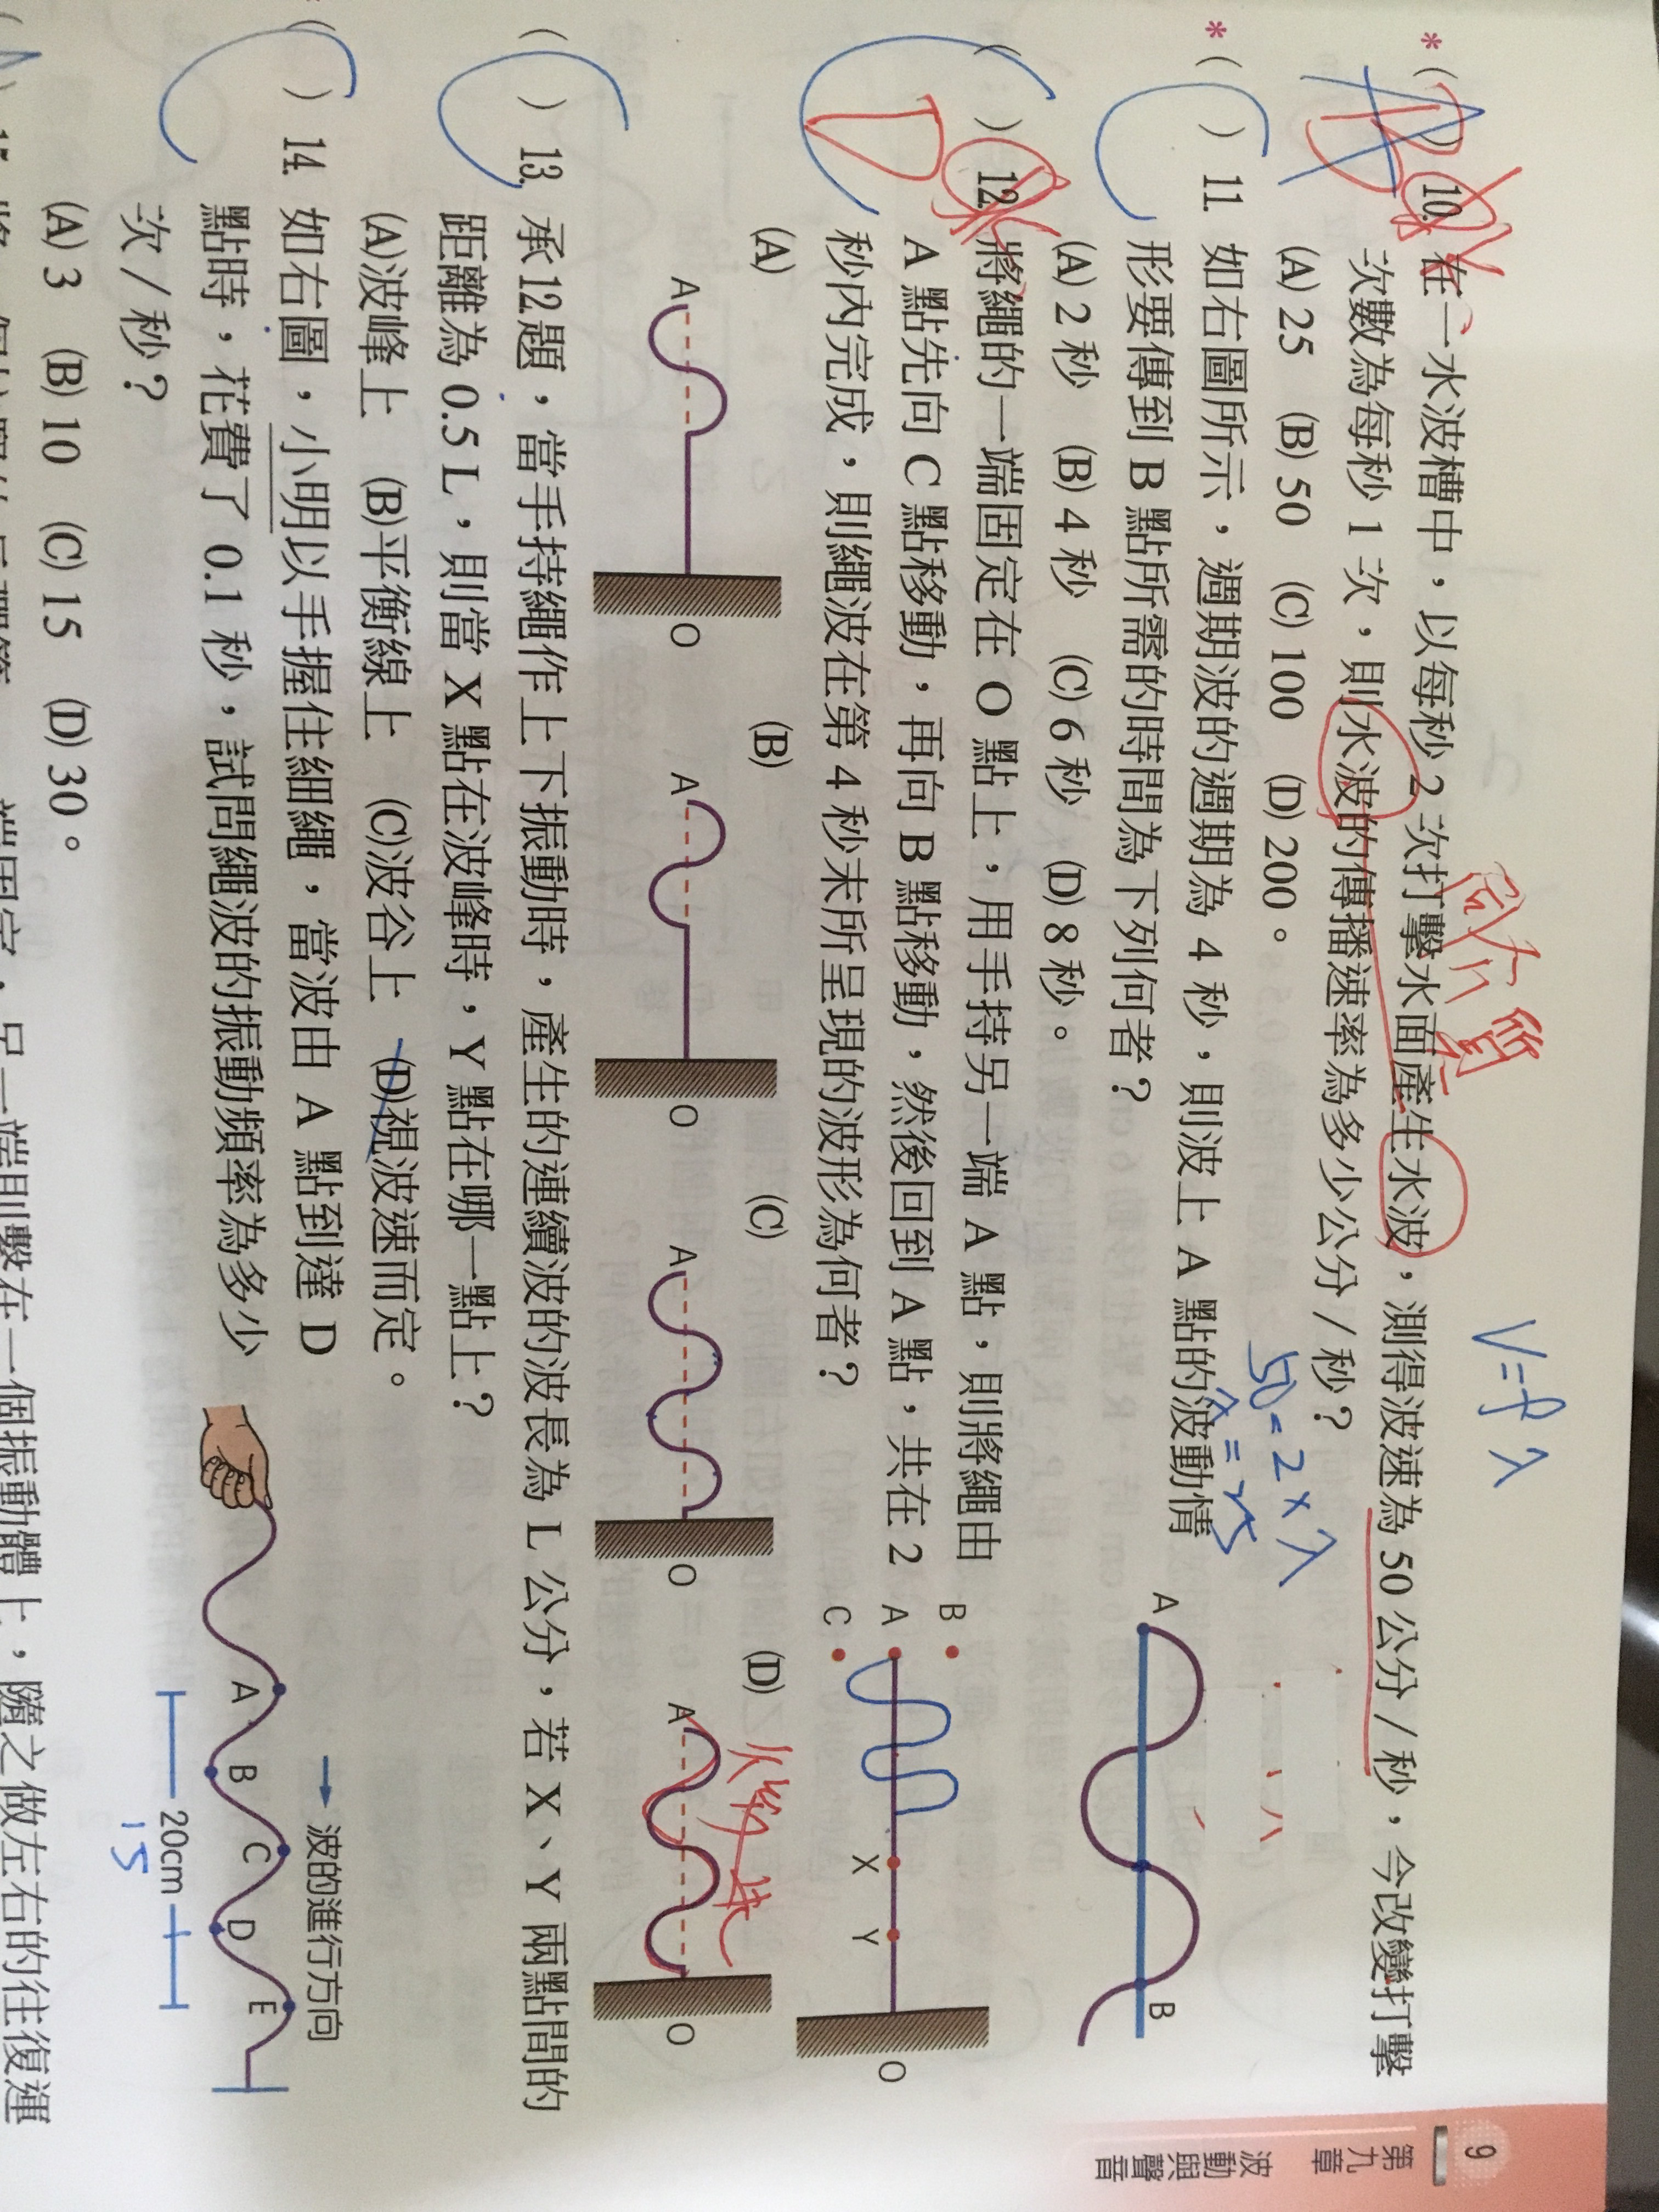 9
第九章
波動與聲音
V=fλ
同介質
*( ) 10. 在一水波槽中，以每秒 2 次打擊水面產生水波，測得波速為 50 公分／秒，今改變打擊
次數為每秒 1 次，則水波的傳播速率為多少公分／秒？
50=2×λ
λ=25
(A) 25 (B) 50 (C) 100 (D) 200。
*( ) 11. 如右圖所示，週期波的週期為 4 秒，則波上 A 點的波動情
形要傳到 B 點所需的時間為下列何者？
(A) 2 秒 (B) 4 秒 (C) 6 秒 (D) 8 秒。
C
A
B
( ) 12. 將繩的一端固定在 O 點上，用手持另一端 A 點，則將繩由
A 點先向 C 點移動，再向 B 點移動，然後回到 A 點，共在 2
秒內完成，則繩波在第 4 秒末所呈現的波形為何者？
C
D
B
A
C
X
Y
O
(A)
(B)
(C)
(D)
A
O
A
O
A
O
A
O
( ) 13. 承 12.題，當手持繩作上下振動時，產生的連續波的波長為 L 公分，若 X、Y 兩點間的
距離為 0.5 L，則當 X 點在波峰時，Y 點在哪一點上？
(A)波峰上 (B)平衡線上 (C)波谷上 (D)視波速而定。
C
*( ) 14. 如右圖，小明以手握住細繩，當波由 A 點到達 D
點時，花費了 0.1 秒，試問繩波的振動頻率為多少
次／秒？
(A) 3 (B) 10 (C) 15 (D) 30。
C
波的進行方向
A
B
C
D
E
20cm
15
端固定，另一端則繫在一個振動體上，隨之做左右的往復運